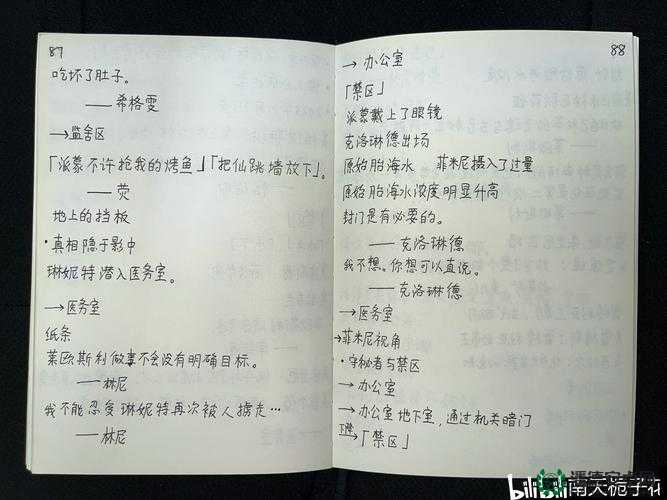 87
吃坏了肚子。
——希格雯
→监舍区
「派蒙不许抢我的烤鱼」「把仙跳墙放下」。
——荧
地上的挡板
·真相隐于影中
琳妮特潜入医务室。
→医务室
纸条
莱欧斯利做事不会没有明确目标。
——林尼
我不能忍受琳妮特再次被人掳走…
——林尼
88
→办公室
「禁区」
派蒙戴上了眼镜
克洛琳德出场
原始胎海水 菲米尼摄入了过量
原始胎海水浓度明显升高
封门是有必要的。
——克洛琳德
我不想。你想可以直说。
——克洛琳德
→医务室
→菲米尼视角
·守秘者与禁区
→办公室
→办公室地下室,通过机关暗门
下降
→「禁区」
bilibili